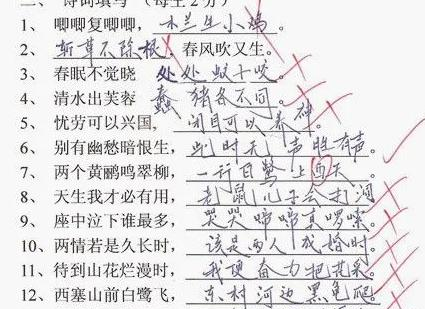 二、诗词填写（每空2分）
1、唧唧复唧唧，木兰生小鸡。
2、斩草不除根，春风吹又生。
3、春眠不觉晓 处处蚊子咬。
4、清水出芙蓉 蠢猪各不同。
5、忧劳可以兴国，闭目可以养神。
6、别有幽愁暗恨生，此时无声胜有声。
7、两个黄鹂鸣翠柳，一行白鹭上西天。
8、天生我才必有用，老鼠儿子会打洞。
9、座中泣下谁最多，哭哭啼啼真啰嗦。
10、两情若是久长时，该是两人成婚时。
11、待到山花烂漫时，我要奋力把花采。
12、西塞山前白鹭飞，东村河边黑龟爬。